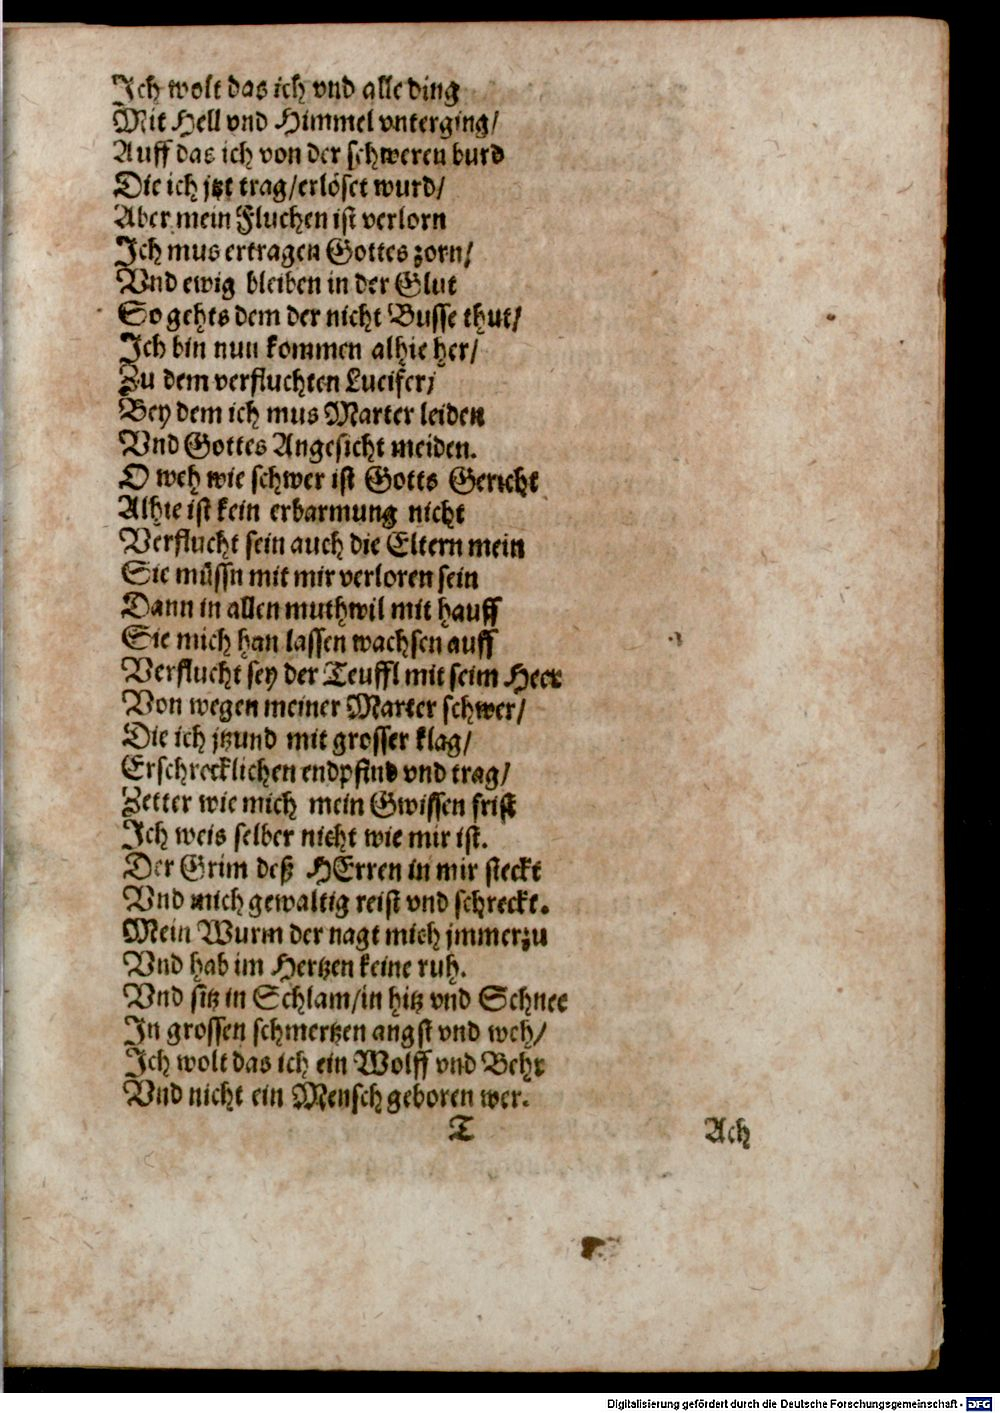 Ich wolt das ich vnd alle ding
Mit Hell vnd Himmel vnterging/
Auff das ich von der schweren burd
Die ich jtzt trag/erlöset wurd/
Aber mein Fluchen ist verlorn
Ich mus ertragen Gottes zorn/
Vnd ewig bleiben in der Glut
So gehts dem der nicht Busse thut/
Ich bin nun kommen alhie her/
Zu dem verfluchten Lucifer/
Bey dem ich mus Marter leiden
Vnd Gottes Angesicht meiden.
O weh wie schwer ist Gotts Gericht
Alhie ist kein erbarmung nicht
Verflucht sein auch die Eltern mein
Sie müssn mit mir verloren sein
Dann in allen muthwil mit hauff
Sie mich han lassen wachsen auff
Verflucht sey der Teuffl mit seim Heer
Von wegen meiner Marter schwer/
Die ich jtzund mit grosser klag/
Erschrecklichen endpfind vnd trag/
Zetter wie mich mein Gwissen frist
Ich weis selber nicht wie mir ist.
Der Grim deß HErren in mir steckt
Vnd mich gewaltig reist vnd schreckt.
Mein Wurm der nagt mich jmmerzu
Vnd hab im Hertzen keine ruh.
Vnd sitz in Schlam/in hitz vnd Schnee
In grossen schmertzen angst vnd weh/
Ich wolt das ich ein Wolff vnd Behr
Vnd nicht ein Mensch geboren wer.
T Ach
Digitalisierung gefördert durch die Deutsche Forschungsgemeinschaft - DFG